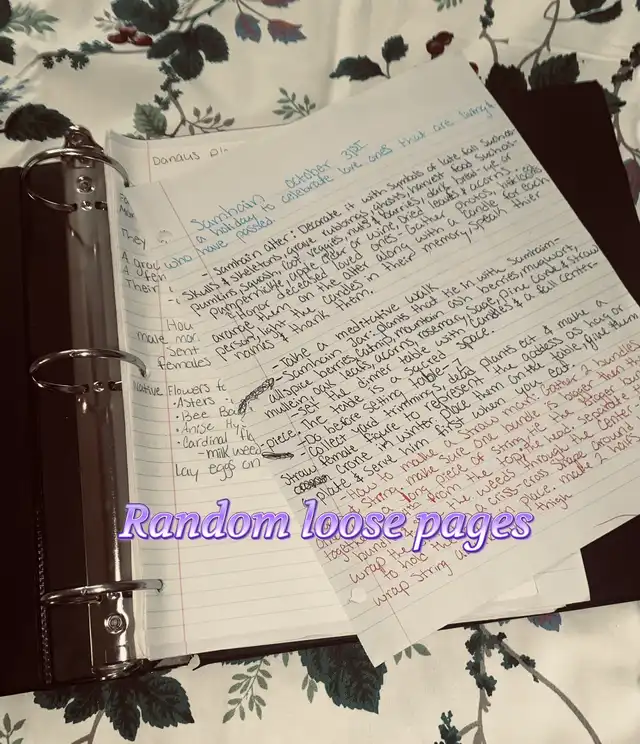 Danaus pl
They
A group
A fem
Their
How
make mor
Sent
females
Native Flowers to
• Asters
• Bee Ba
• Anise Hy
• Cardinal fl
- milk weed
Lay eggs on
Samhain October 31st
a holiday to celebrate love ones that are living &
who have passed
- Samhain alter: Decorate it with symbols of late fall
Skulls & skeletons, grave rubbings, ghosts, harvest food
Pumpkins, squash, root veggies, nuts & berries, dark bread, rye or
pumpernickle, apple cider or wine, dried leaves & acorns.
- Honor deceased loved ones: Gather photos, heirlooms
ararge them on the alter along with a candle for each
person, light the candles in their memory, speak their
names & thank them.
- Take a meditative walk
- Samhain Jar: plants that tie in with Samhain-
allspice berries, catnip, mountain ash berries, mugwort,
mullein, oak leafs, acorns, rosemary, sage, pine cone & straw
- Set the dinner table with candles & a fall center-
piece. - The table is a sacred space.
- Do before setting table-
Collect yard trimmings, dead plants ect & make a
straw female figure to represent the goddess as hag or
crone in winter. Place them on the table, give them
plate & serve him first when you eat.
- How to make a straw man: Gather 2 bundles
string, make sure one bundle is bigger then the
together a long piece of string tie the bigger
bundle from the top the head. separate
wrap the the weeds through the center
to hold the criss-cross shape around
wrap string place make 2 holes
thigh
Random loose pages